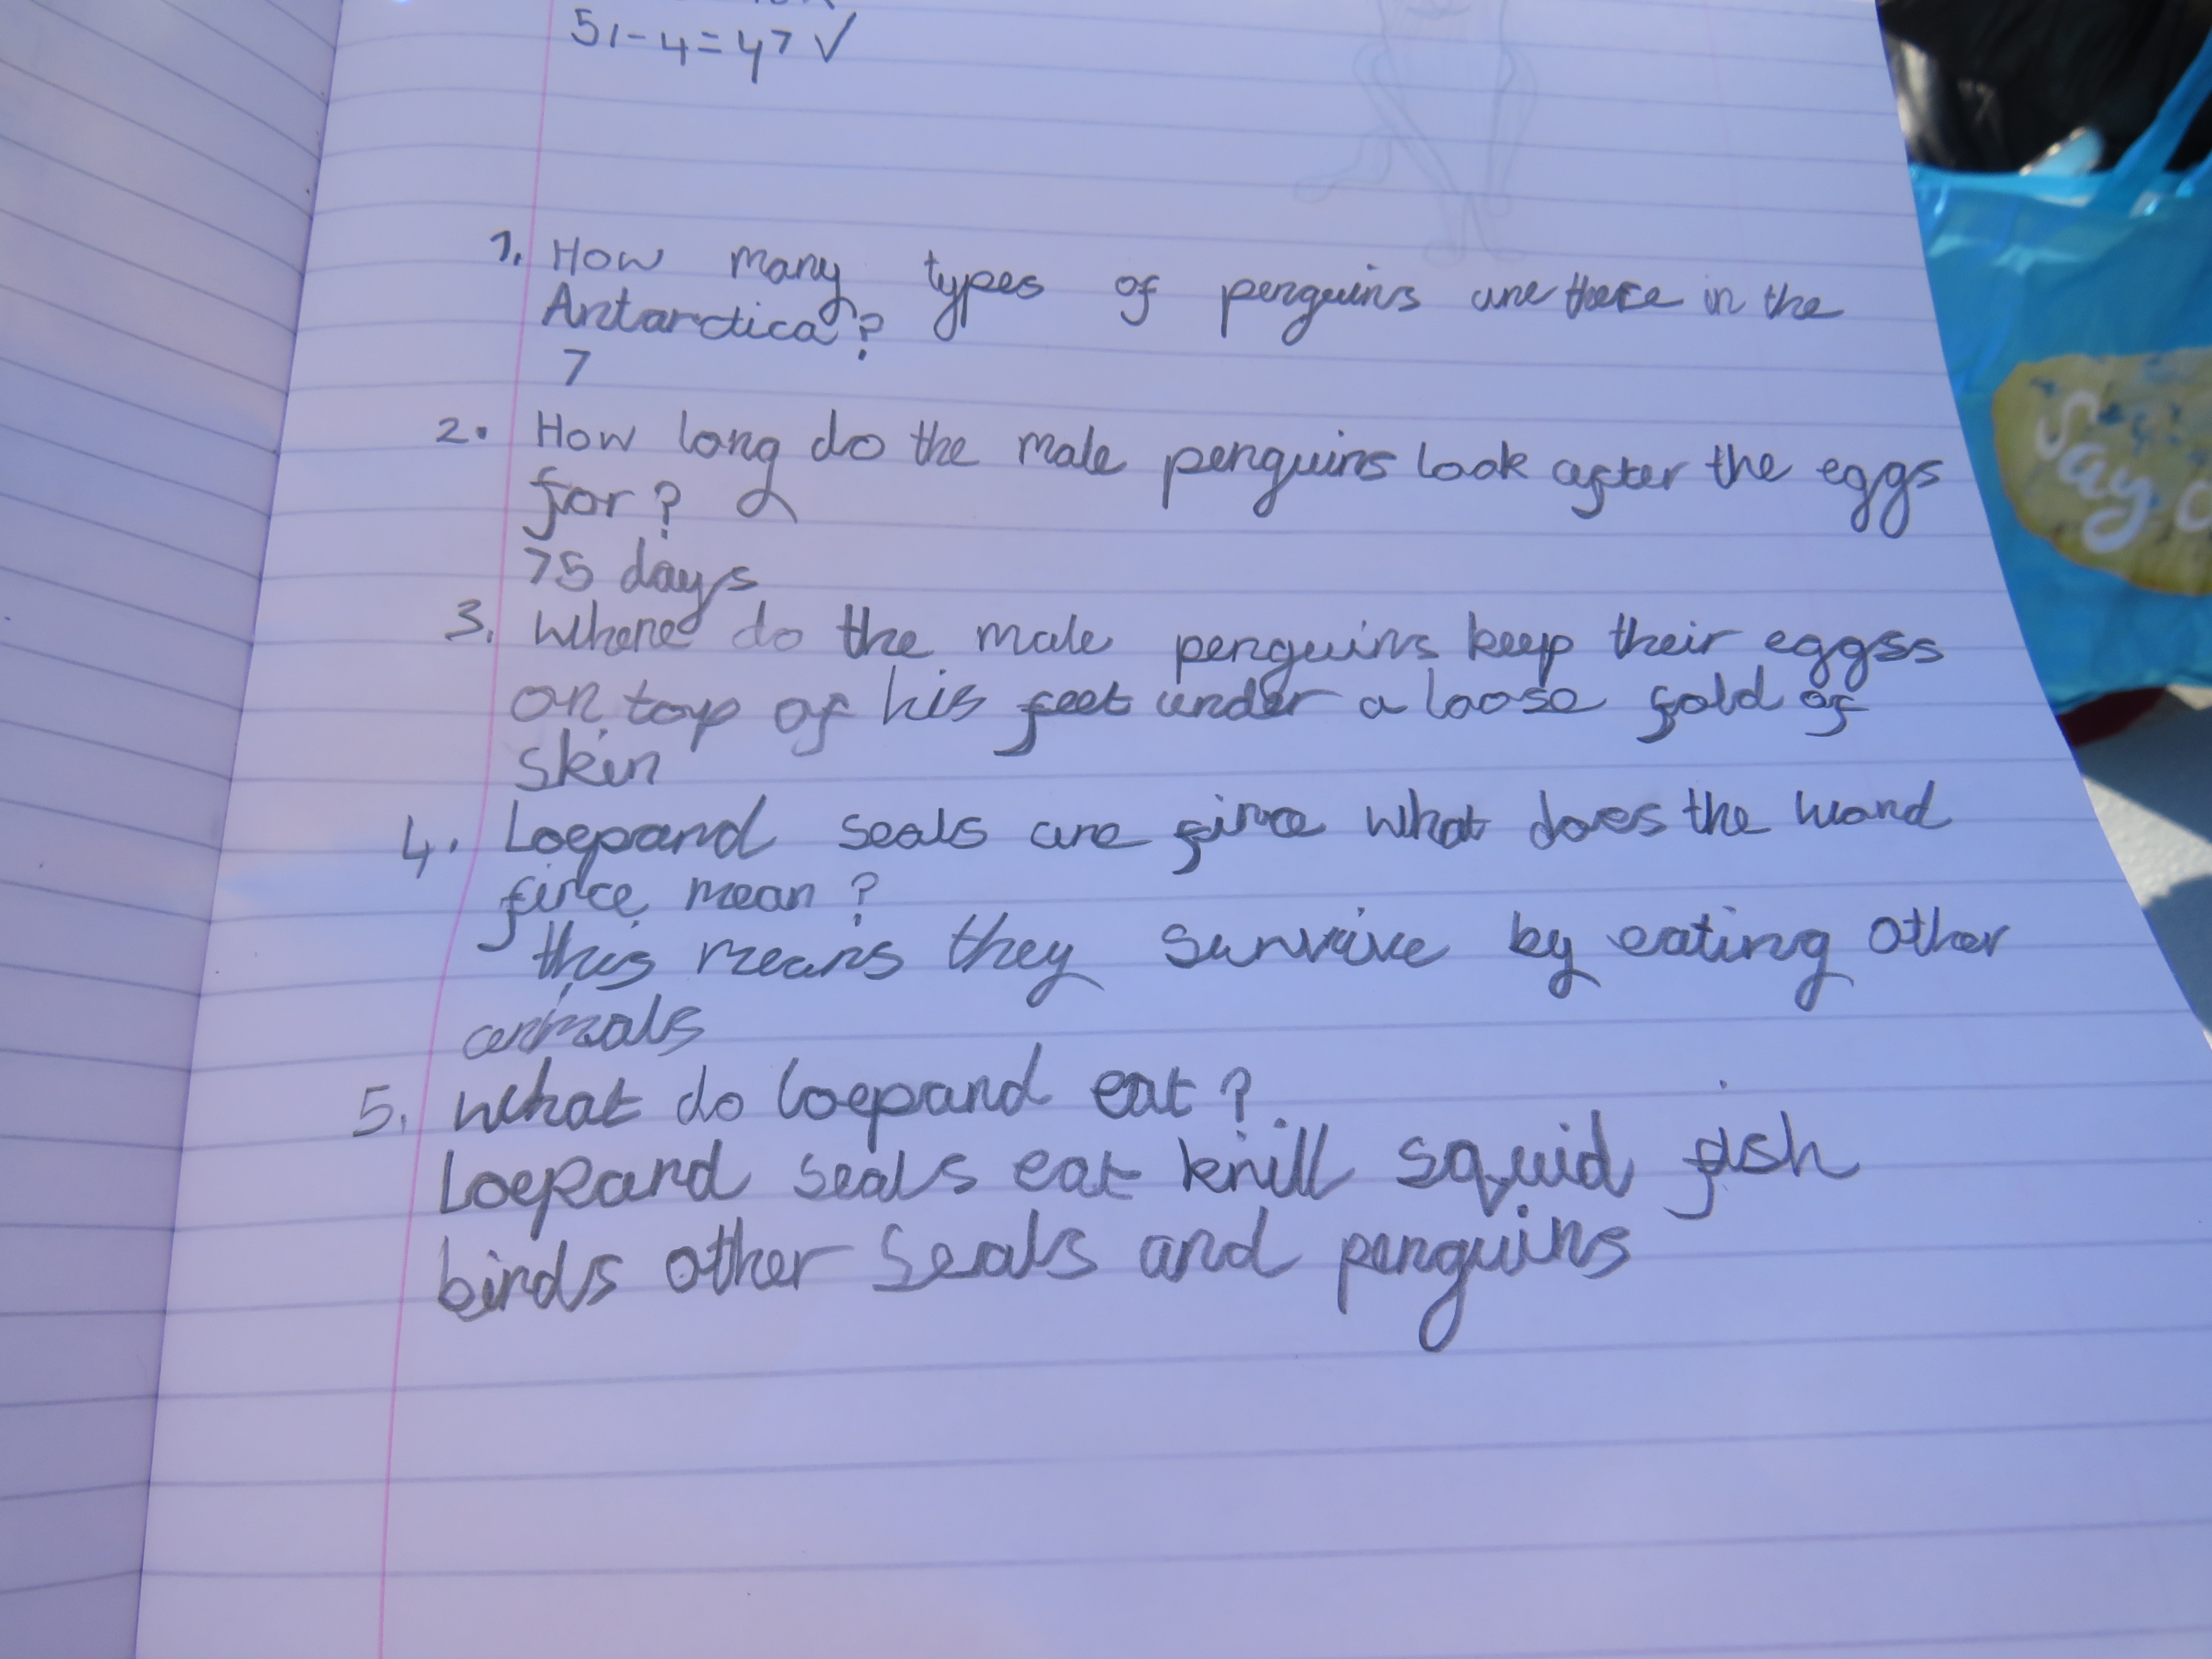 51-4=47 ✓
1. How many types of penguins are there in the
Antarctica?
7
2. How long do the male penguins look after the eggs
for?
75 days
3. Where do the male penguins keep their eggss
on top of his feet under a loose fold of
skin
4. Loepard seals are firce what does the word
firce mean?
this means they survive by eating other
animals
5. What do loepard eat?
Loepard seals eat krill squid fish
birds other seals and penguins
Say